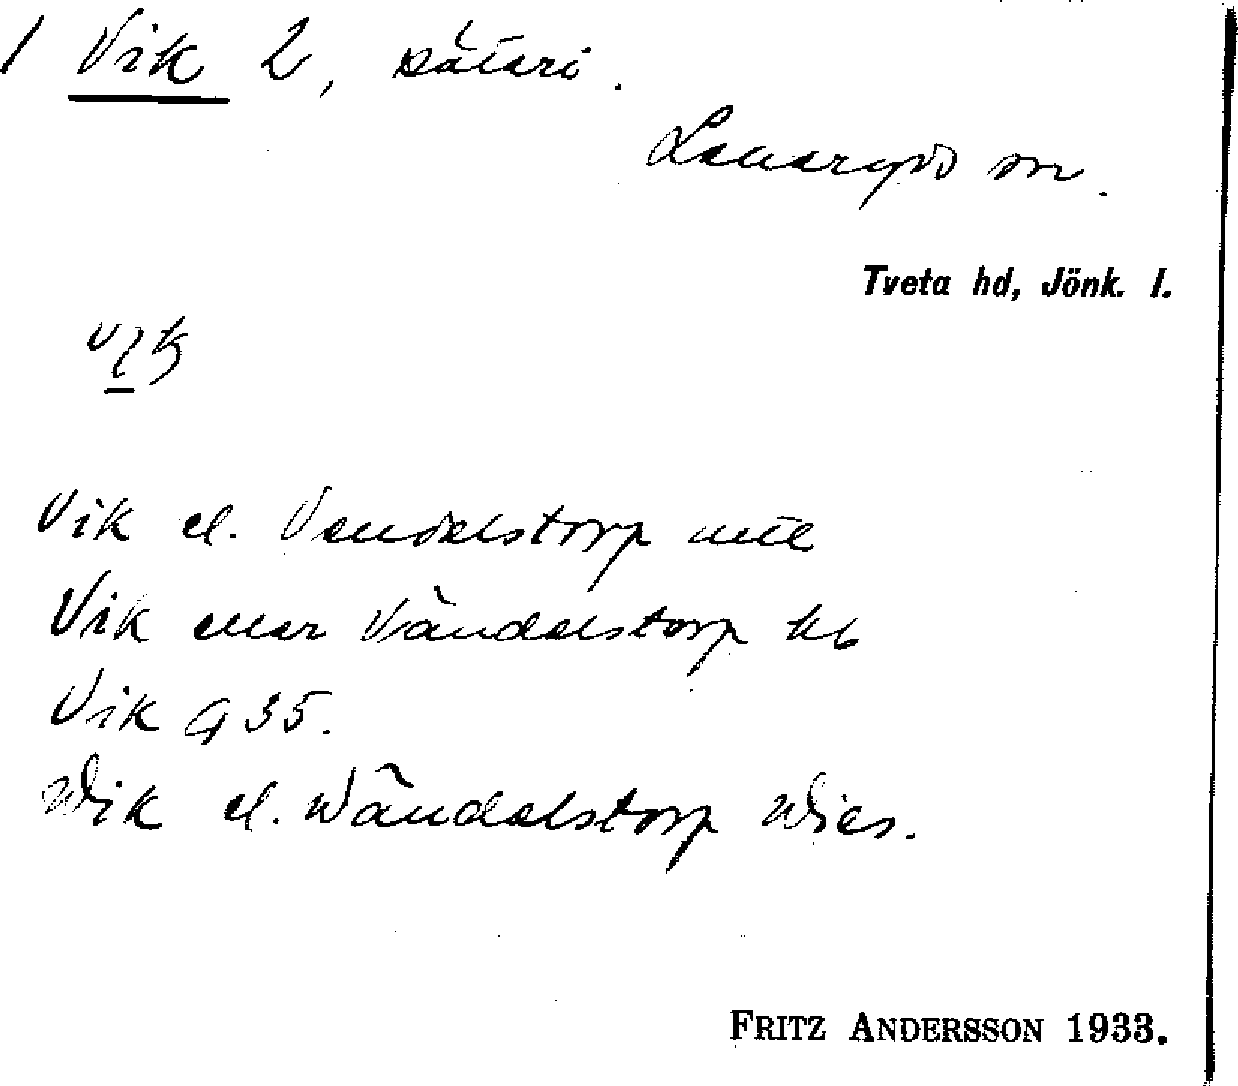 1 Vik 2, säteri.
Lekeryds sn.
Tveta hd, Jönk. l.
Vik el. Vendelstorp uttl
Vik eller Vändelstorp kb
Vik G 35.
Wik el. Wändelstorp Wies.
FRITZ ANDERSSON 1933.